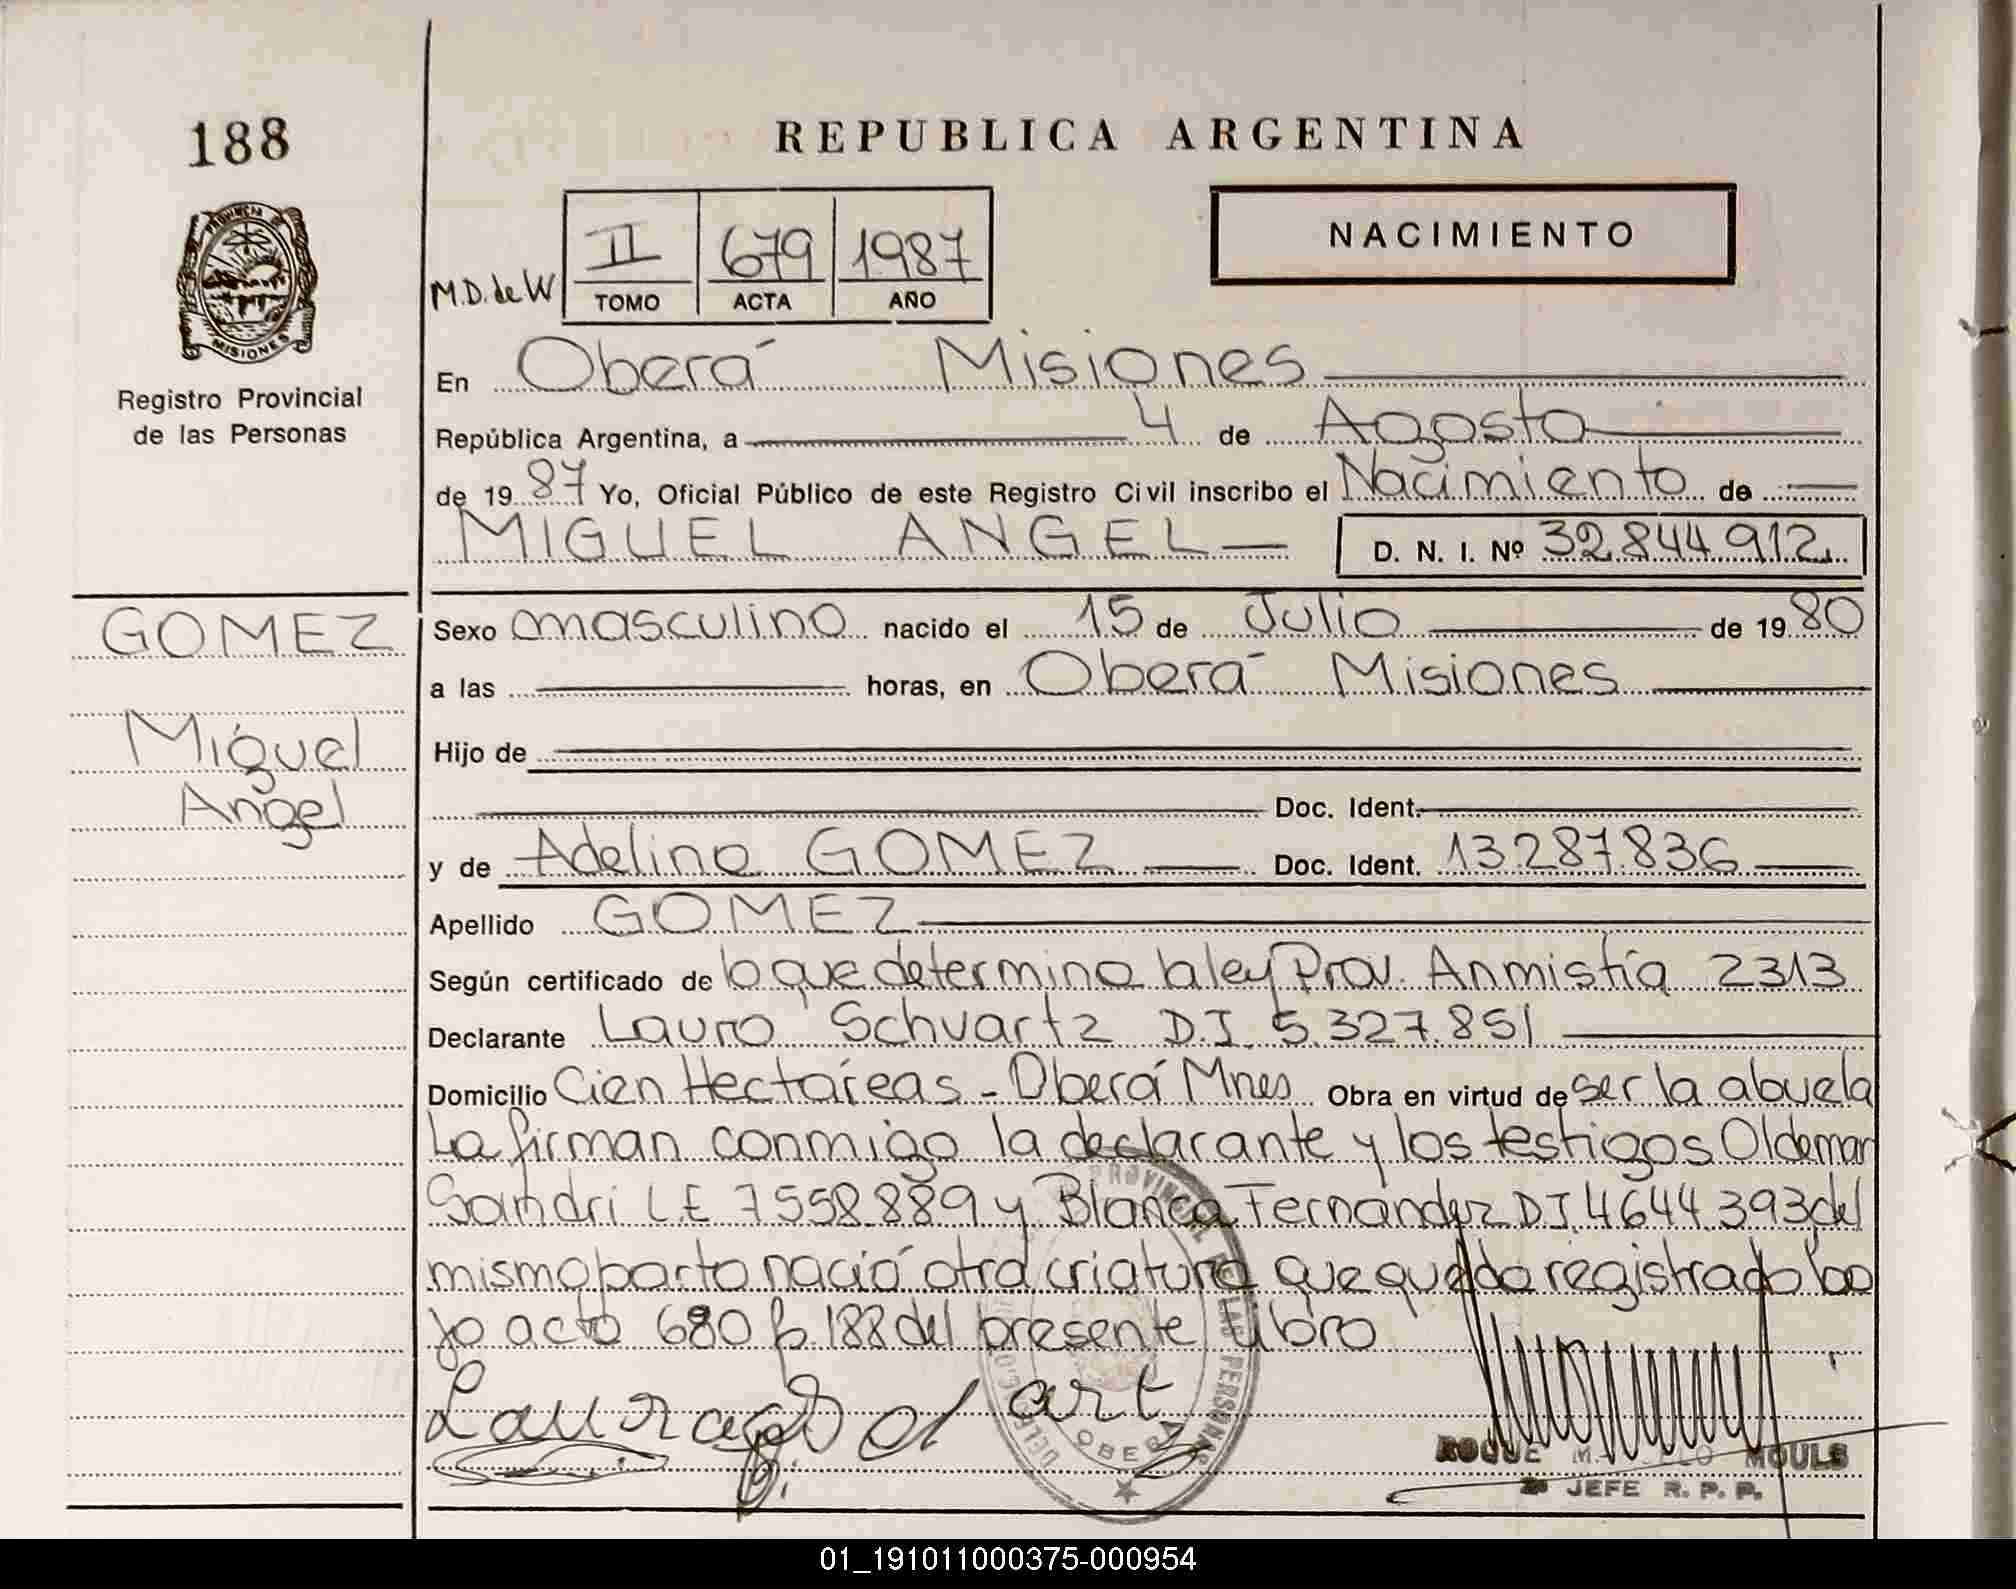 188
REPUBLICA ARGENTINA
PROVINCIA
MISIONES
Registro Provincial
de las Personas
M.D. de W
II 679 1987
TOMO ACTA AÑO
NACIMIENTO
En Oberá Misiones
República Argentina, a 4 de Agosto
de 1987 Yo, Oficial Público de este Registro Civil inscribo el Nacimiento de
MIGUEL ANGEL D. N. I. Nº 32.844.912
GOMEZ
Miguel
Angel
Sexo masculino nacido el 15 de Julio de 1980
a las horas, en Oberá Misiones
Hijo de
Doc. Ident.
y de Adelina GOMEZ Doc. Ident. 13.287.836
Apellido GOMEZ
Según certificado de lo que determina la ley Prov. Anmistía 2313
Declarante Laura Schvartz D.I. 5.327.851
Domicilio Cien Hectáreas - Oberá Mnes Obra en virtud de ser la abuela
La firman conmigo la declarante y los testigos Oldemar
Sandri L.E 7558.889 y Blanca Fernandez DI.4644.393 del
mismo parto nació otra criatura que queda registrado ba
jo acta 680 fo. 188 del presente libro
PROVINCIAL DE LAS PERSONAS
OBERA
ROQUE MOULS
JEFE R. P. P.
01_191011000375-000954